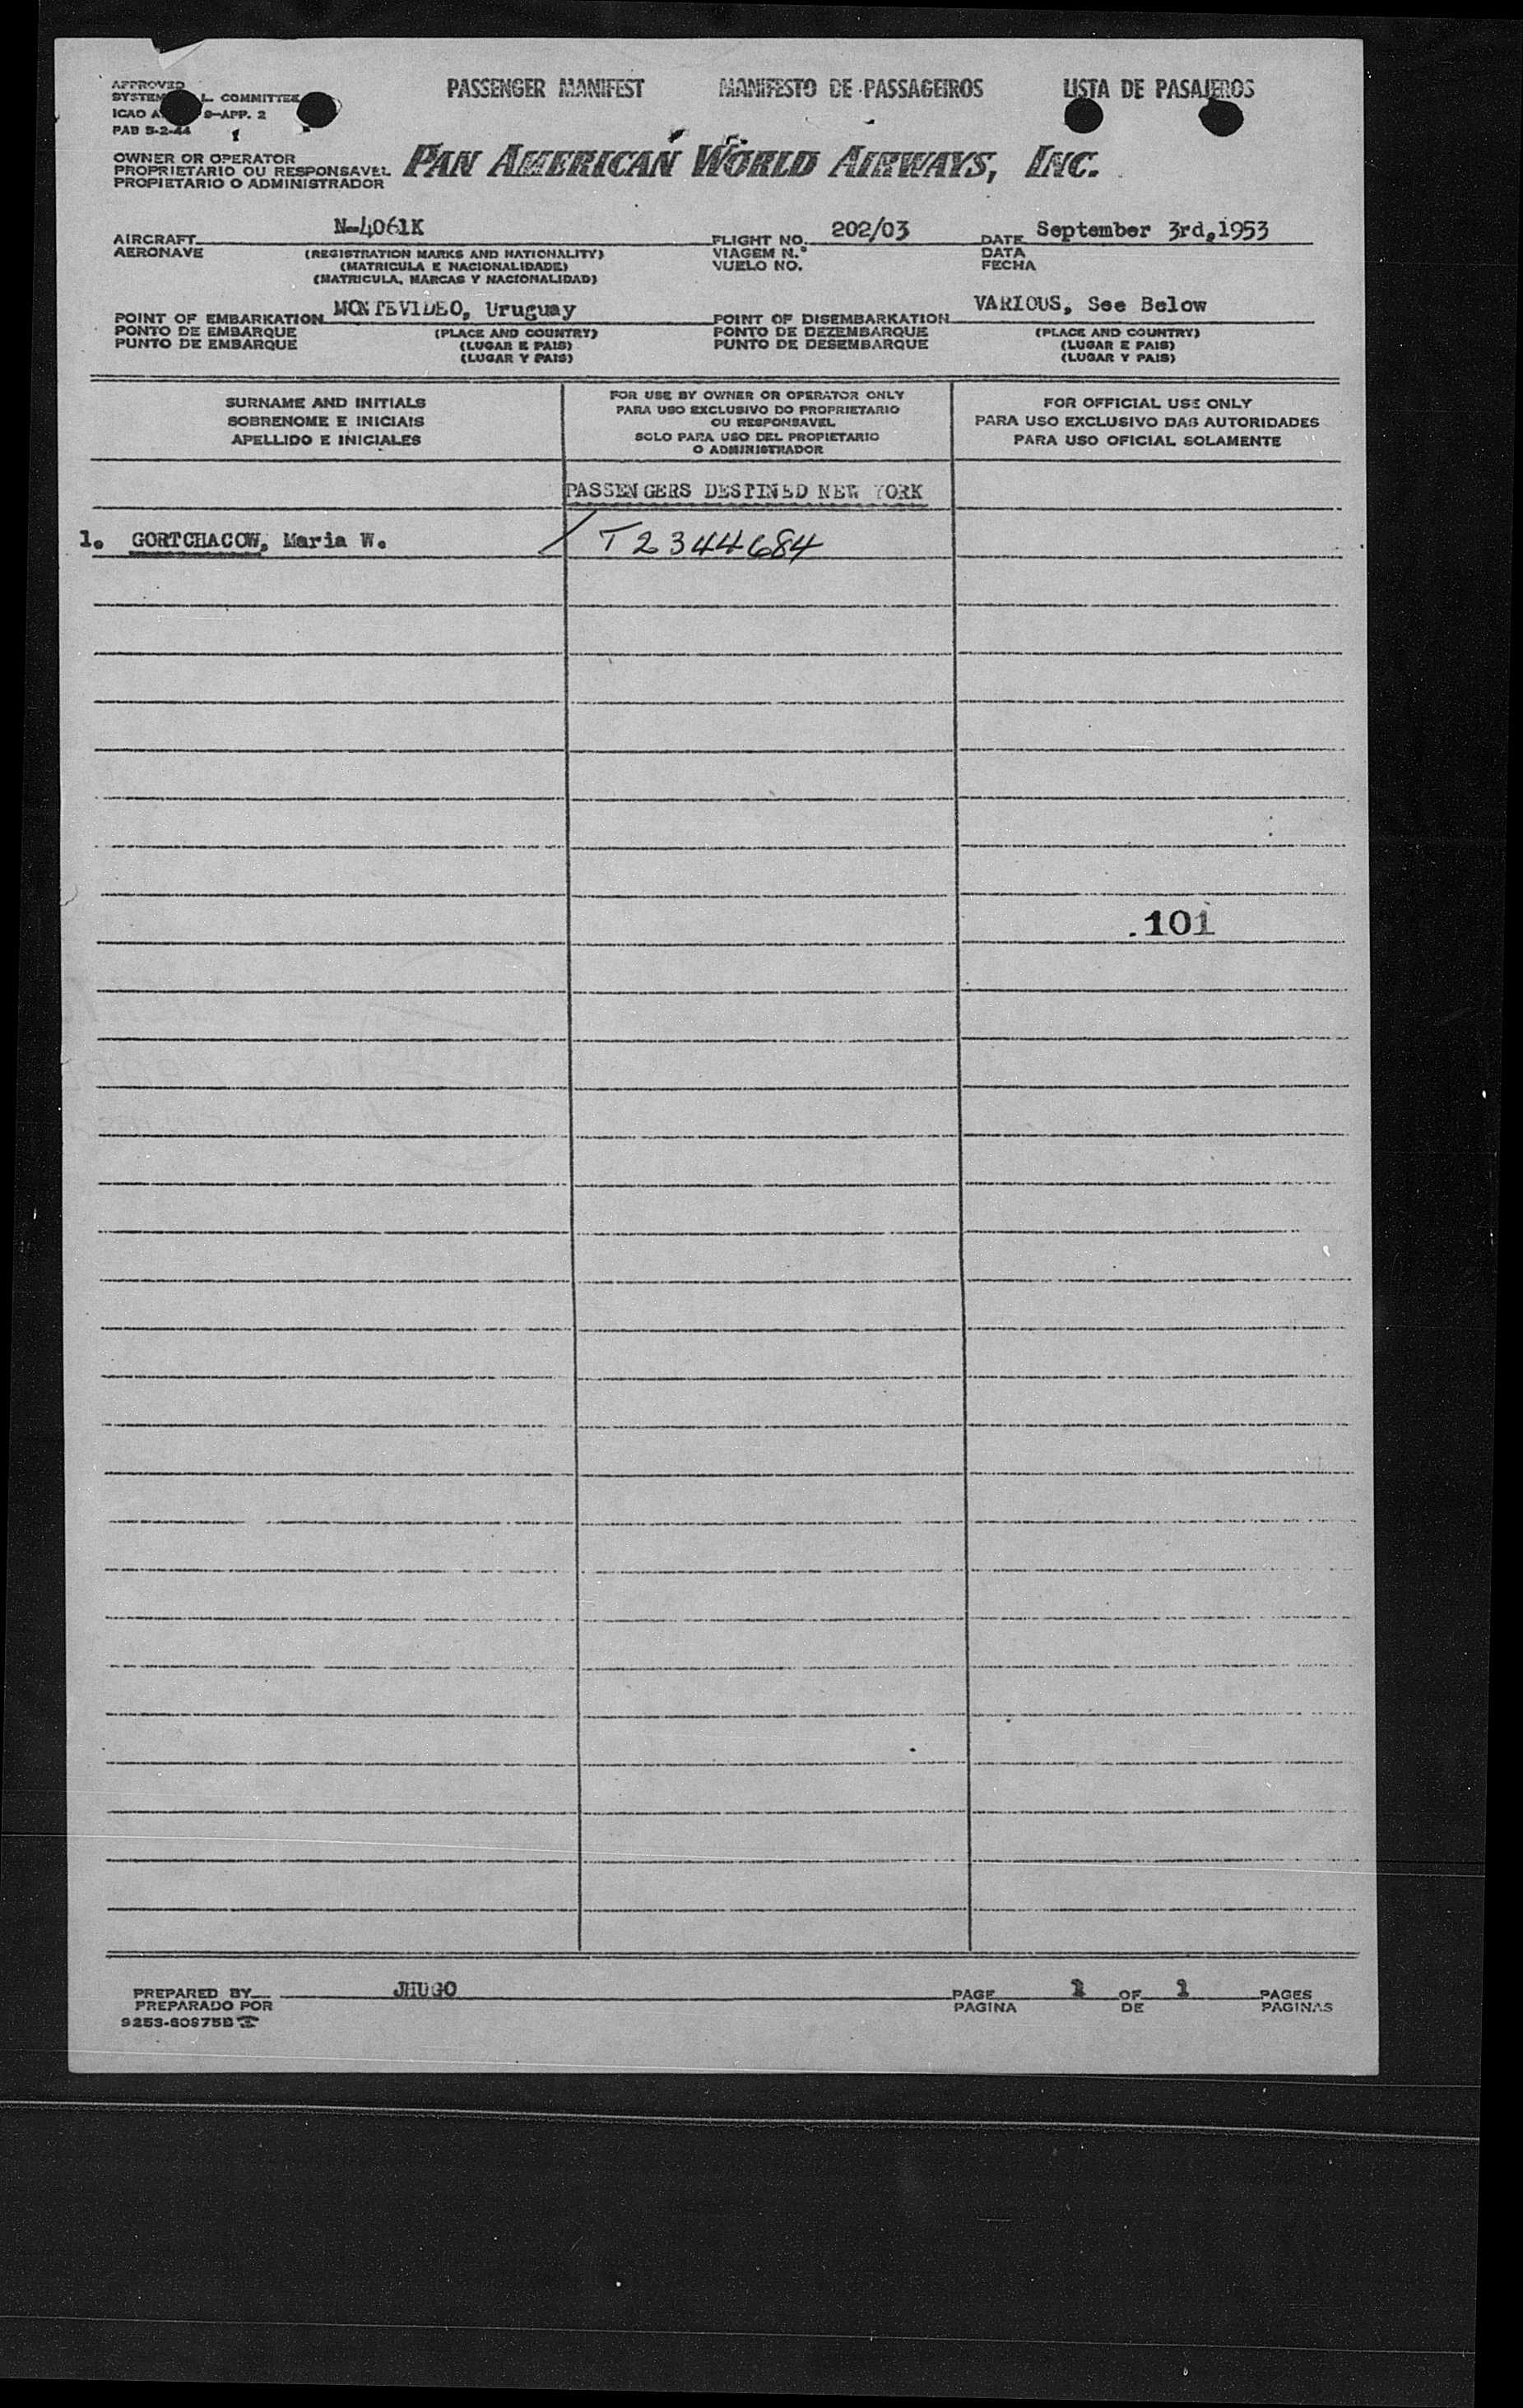 PASSENGER MANIFEST MANIFESTO DE PASSAGEIROS LISTA DE PASAJEROS
APPROVED
SYSTEM L COMMITTEE
ICAO A 9-APP. 2
PAB 5-2-44
OWNER OR OPERATOR
PROPRIETARIO OU RESPONSAVEL
PROPIETARIO O ADMINISTRADOR
PAN AMERICAN WORLD AIRWAYS, INC.
AIRCRAFT N-4061K FLIGHT NO. 202/03 DATE September 3rd,1953
AERONAVE (REGISTRATION MARKS AND NATIONALITY) VIAGEM N.º DATA
(MATRICULA E NACIONALIDADE) VUELO NO. FECHA
(MATRICULA, MARCAS Y NACIONALIDAD)
POINT OF EMBARKATION MONTEVIDEO, Uruguay POINT OF DISEMBARKATION VARIOUS, See Below
PONTO DE EMBARQUE (PLACE AND COUNTRY) PONTO DE DEZEMBARQUE (PLACE AND COUNTRY)
PUNTO DE EMBARQUE (LUGAR E PAIS) PUNTO DE DESEMBARQUE (LUGAR E PAIS)
(LUGAR Y PAIS) (LUGAR Y PAIS)
SURNAME AND INITIALS
SOBRENOME E INICIAIS
APELLIDO E INICIALES
FOR USE BY OWNER OR OPERATOR ONLY
PARA USO EXCLUSIVO DO PROPRIETARIO
OU RESPONSAVEL
SOLO PARA USO DEL PROPIETARIO
O ADMINISTRADOR
FOR OFFICIAL USE ONLY
PARA USO EXCLUSIVO DAS AUTORIDADES
PARA USO OFICIAL SOLAMENTE
PASSENGERS DESTINED NEW YORK
1. GORTCHACOW, Maria W. / T2344684
101
PREPARED BY JHUGO PAGE 1 OF 1 PAGES
PREPARADO POR PAGINA DE PAGINAS